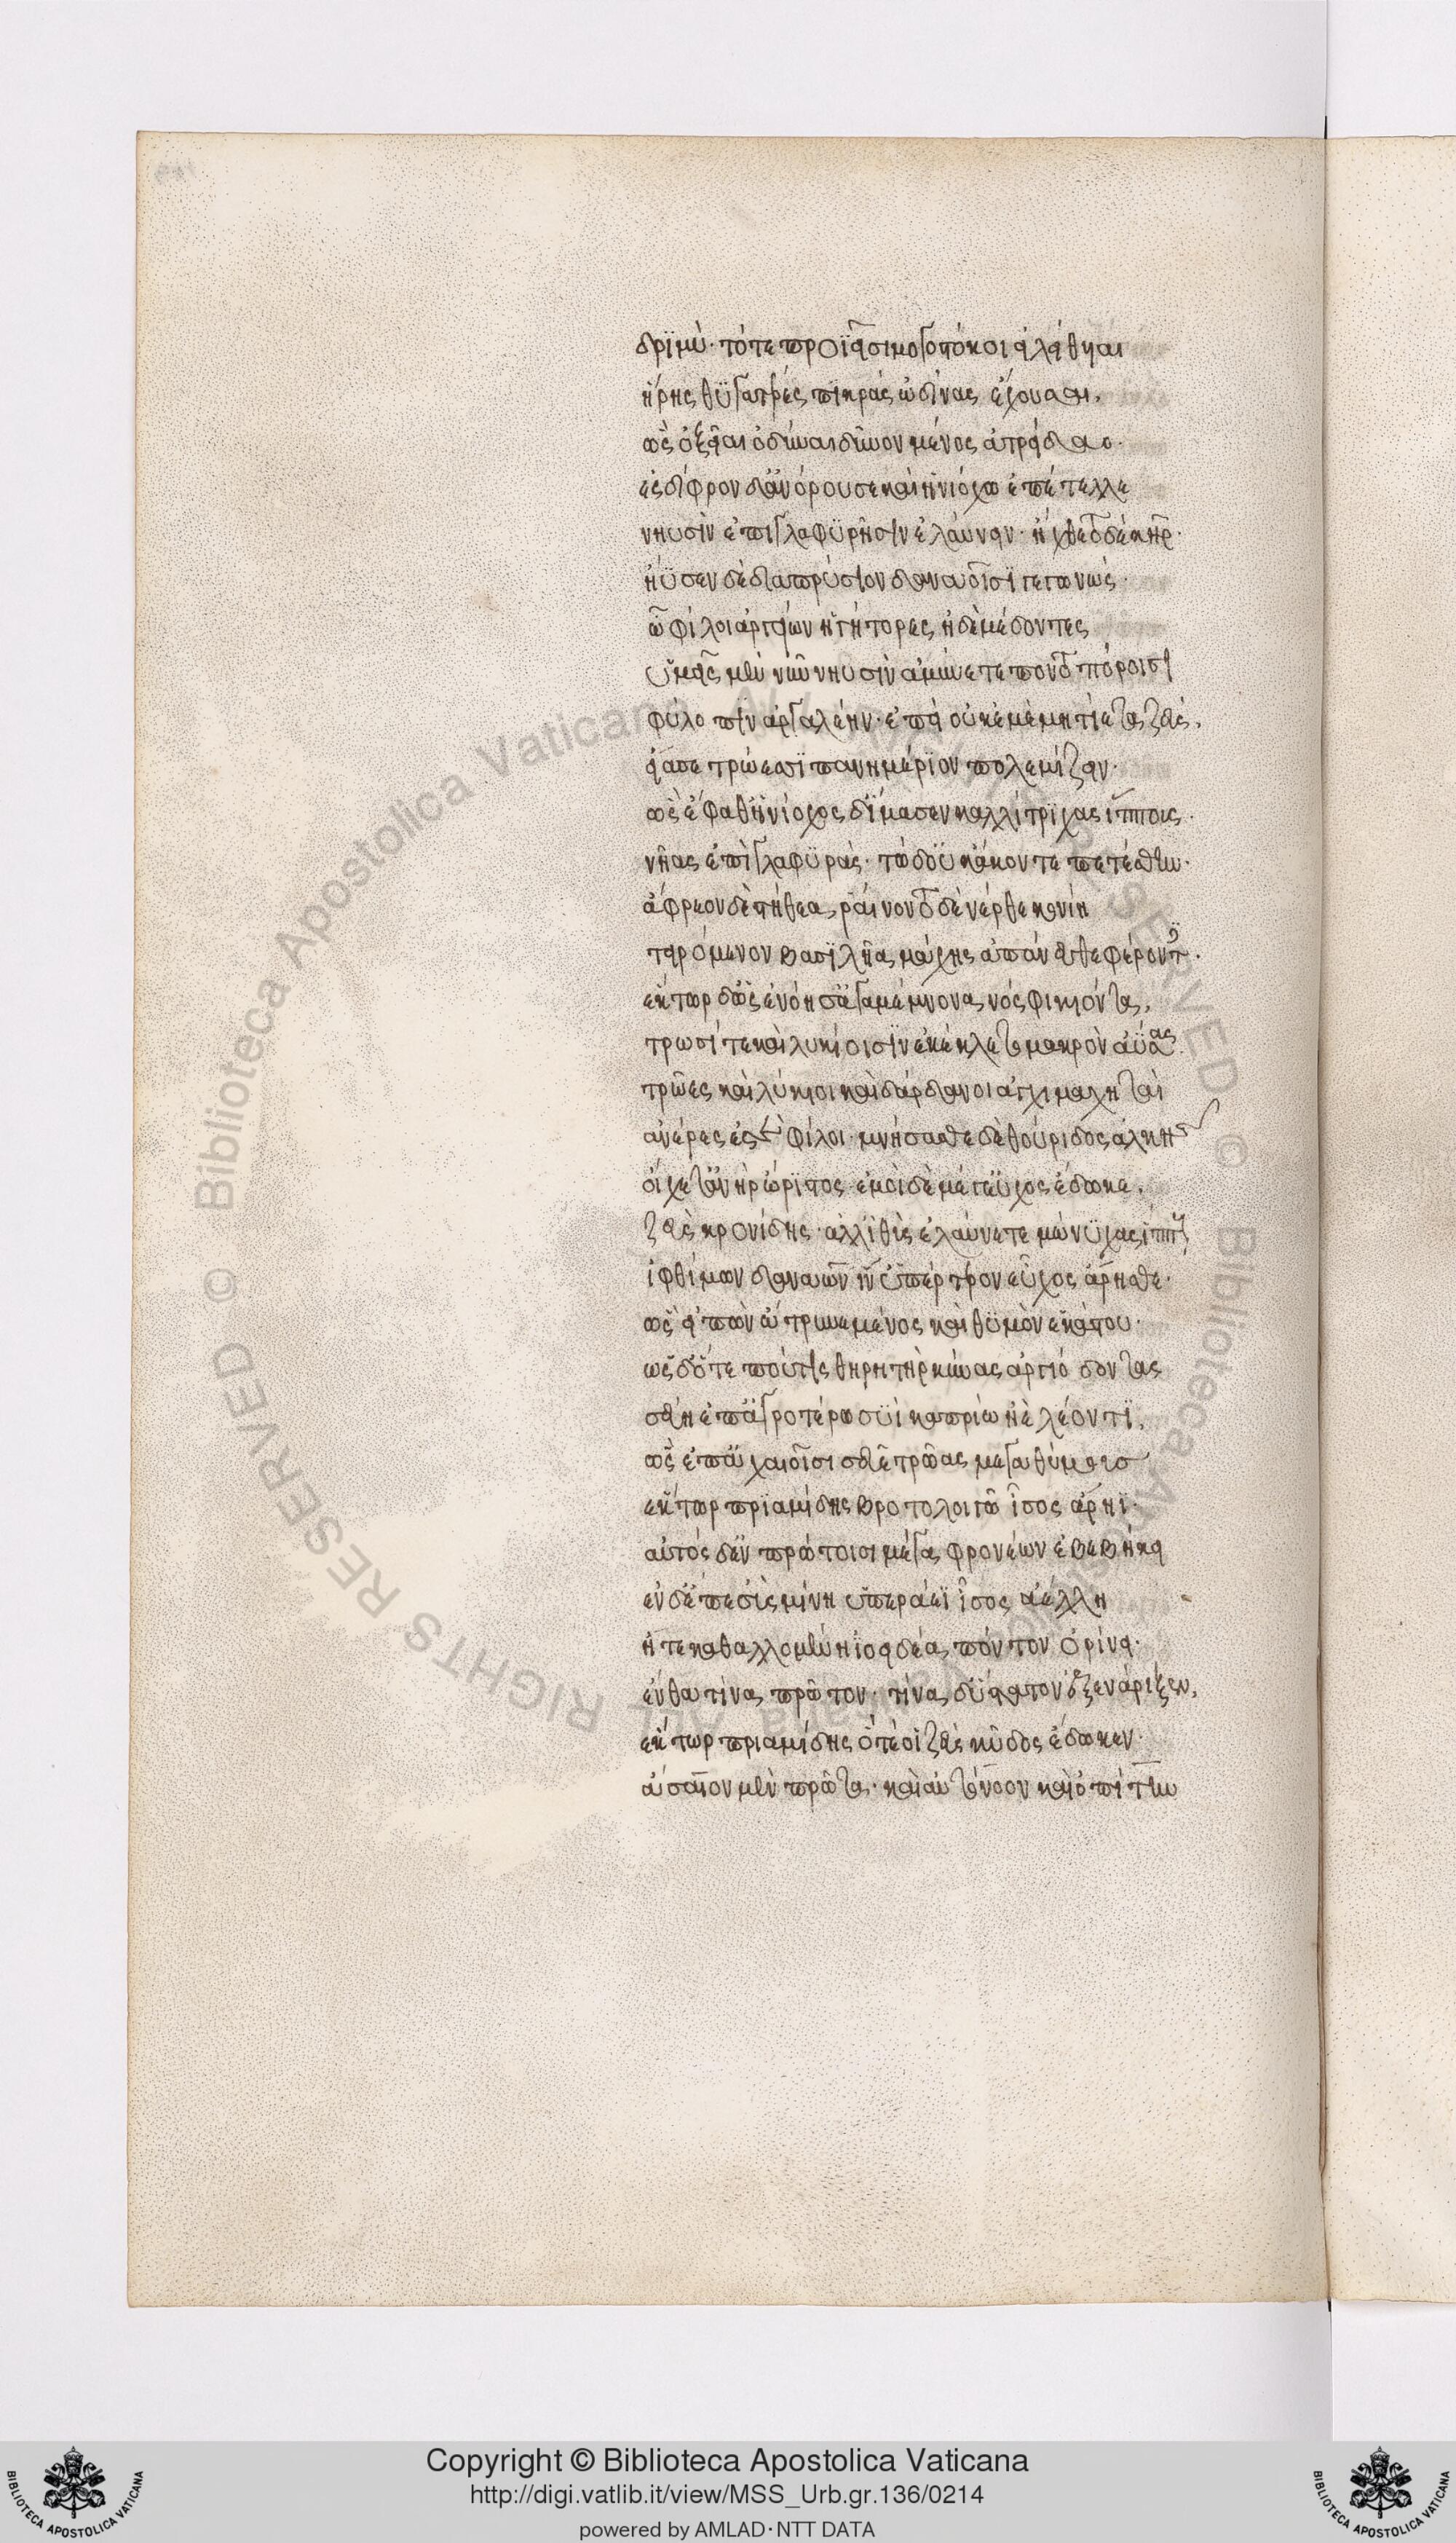 δριμὺ· τότε προϊεῖσι μογοστόκοι εἰλείθυιαι
ἥρης θυγατέρες πικρὰς ὠδῖνας ἔχουσαι.
ὣς ὀξεῖαι ὀδύναι δῦνον μένος ἀτρείδαο.
ἐς δίφρον δ' ἀνόρουσε καὶ ἡνιόχω ἐπέτελλε
νηυσὶν ἐπι γλαφυρῆσιν ἐλαύνειν· ἤχθετο δὲ κῆρ·
ἤϋσεν δὲ διαπρύσιον δαναοῖσι γεγωνώς·
ὦ φίλοι ἀργείων ἡγήτορες ἠδὲ μέδοντες
ὑμεῖς μὲν νῦν νηυσὶν ἀμύνετε ποντοπόροισι
φύλοπιν ἀργαλέην· ἐπεὶ οὐκ ἐμὲ μητίετα ζεὺς.
εἴασε τρώεσσι πανημέριον πολεμίζειν·
ὣς ἔφαθ' ἡνίοχος δ' ἵμασεν καλλίτριχας ἵππους·
νῆας ἐπὶ γλαφυράς· τὼ δ' οὐκ ἄκοντε πετέσθην·
ἄφρεον δὲ στήθεα, ῥαίνοντο δὲ νέρθε κονίη
τειρόμενον βασιλῆα μάχης ἀπάνευθε φέροντες·
ἕκτωρ δ' ὡς ἐνόησ' ἀγαμέμνονα νόσφι κιόντα,
τρωσί τε καὶ λυκίοισιν ἐκέκλετο μακρὸν ἀΰσας
τρῶες καὶ λύκιοι καὶ δάρδανοι ἀγχιμαχηταὶ
ἀνέρες ἐστὲ φίλοι· μνήσασθε δὲ θούριδος ἀλκῆς
οἴχετ' ἀνὴρ ὤριστος· ἐμοὶ δὲ μέγ' εὖχος ἔδωκε,
ζεὺς κρονίδης· ἀλλ' ἰθὺς ἐλαύνετε μώνυχας ἵππους
ἰφθίμων δαναῶν ἵν' ὑπέρτερον εὖχος ἄρησθε·
ὣς εἰπὼν ὤτρυνε μένος καὶ θυμὸν ἑκάστου·
ὡς δ' ὅτε πού τις θηρητὴρ κύνας ἀργιόδοντας
σεύη ἐπ' ἀγροτέρω συῒ καπρίω ἠὲ λέοντι,
ὣς ἐπ' ἀχαιοῖσι σεῦε τρῶας μεγαθύμους
ἕκτωρ πριαμίδης βροτολοιγῶ ἶσος ἄρηϊ·
αὐτὸς δ' ἐν πρώτοισι μέγα φρονέων ἐβεβήκει
ἐν δ' ἔπεσ' ὑσμίνη ὑπεραέϊ ἶσος ἀέλλη
ἥ τε καθαλλομένη ἰοειδέα πόντον ὀρίνει·
ἔνθα τίνα πρῶτον· τίνα δ' ὕστατον ἐξενάριξεν,
ἕκτωρ πριαμίδης ὅτε οἱ ζεὺς κῦδος ἔδωκεν·
ἀσαῖον μὲν πρῶτα· καὶ αὐτόνοον καὶ ὀπίτην
Copyright © Biblioteca Apostolica Vaticana
http://digi.vatlib.it/view/MSS_Urb.gr.136/0214
powered by AMLAD·NTT DATA